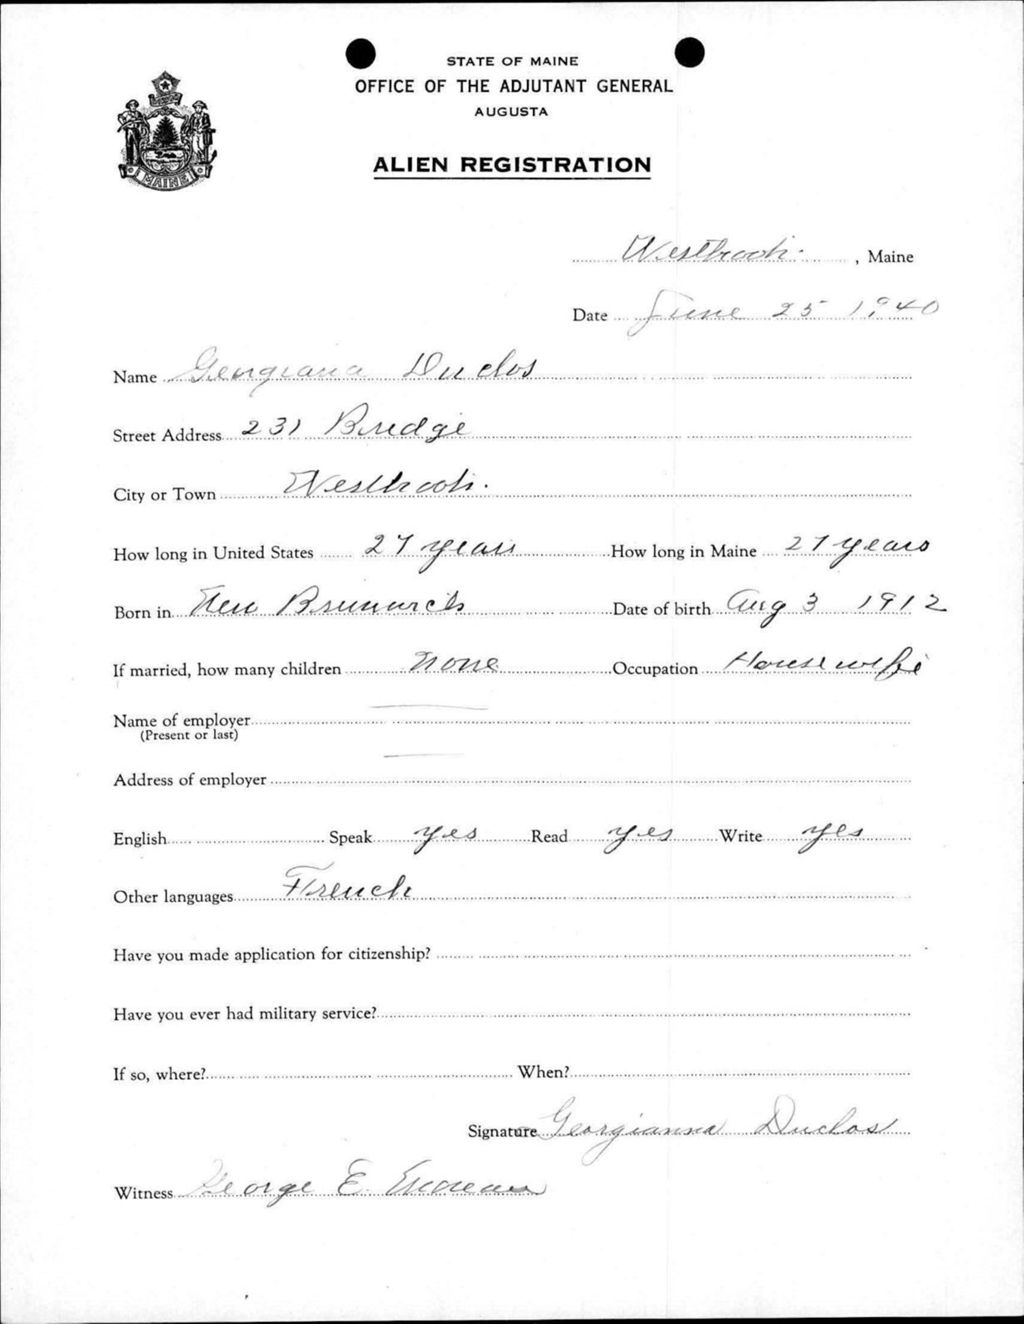 STATE OF MAINE
OFFICE OF THE ADJUTANT GENERAL
AUGUSTA
ALIEN REGISTRATION
MAINE
Westbrook. , Maine
Date June 25 1940
Name Georgiana Duclos
Street Address 231 Bridge
City or Town Westbrook.
How long in United States 27 years How long in Maine 27 years
Born in New Brunswick Date of birth Aug 3 1912
If married, how many children None Occupation Housewife
Name of employer
(Present or last)
Address of employer
English Speak yes Read yes Write yes
Other languages French
Have you made application for citizenship?
Have you ever had military service?
If so, where? When?
Signature Georgianna Duclos
Witness George E.